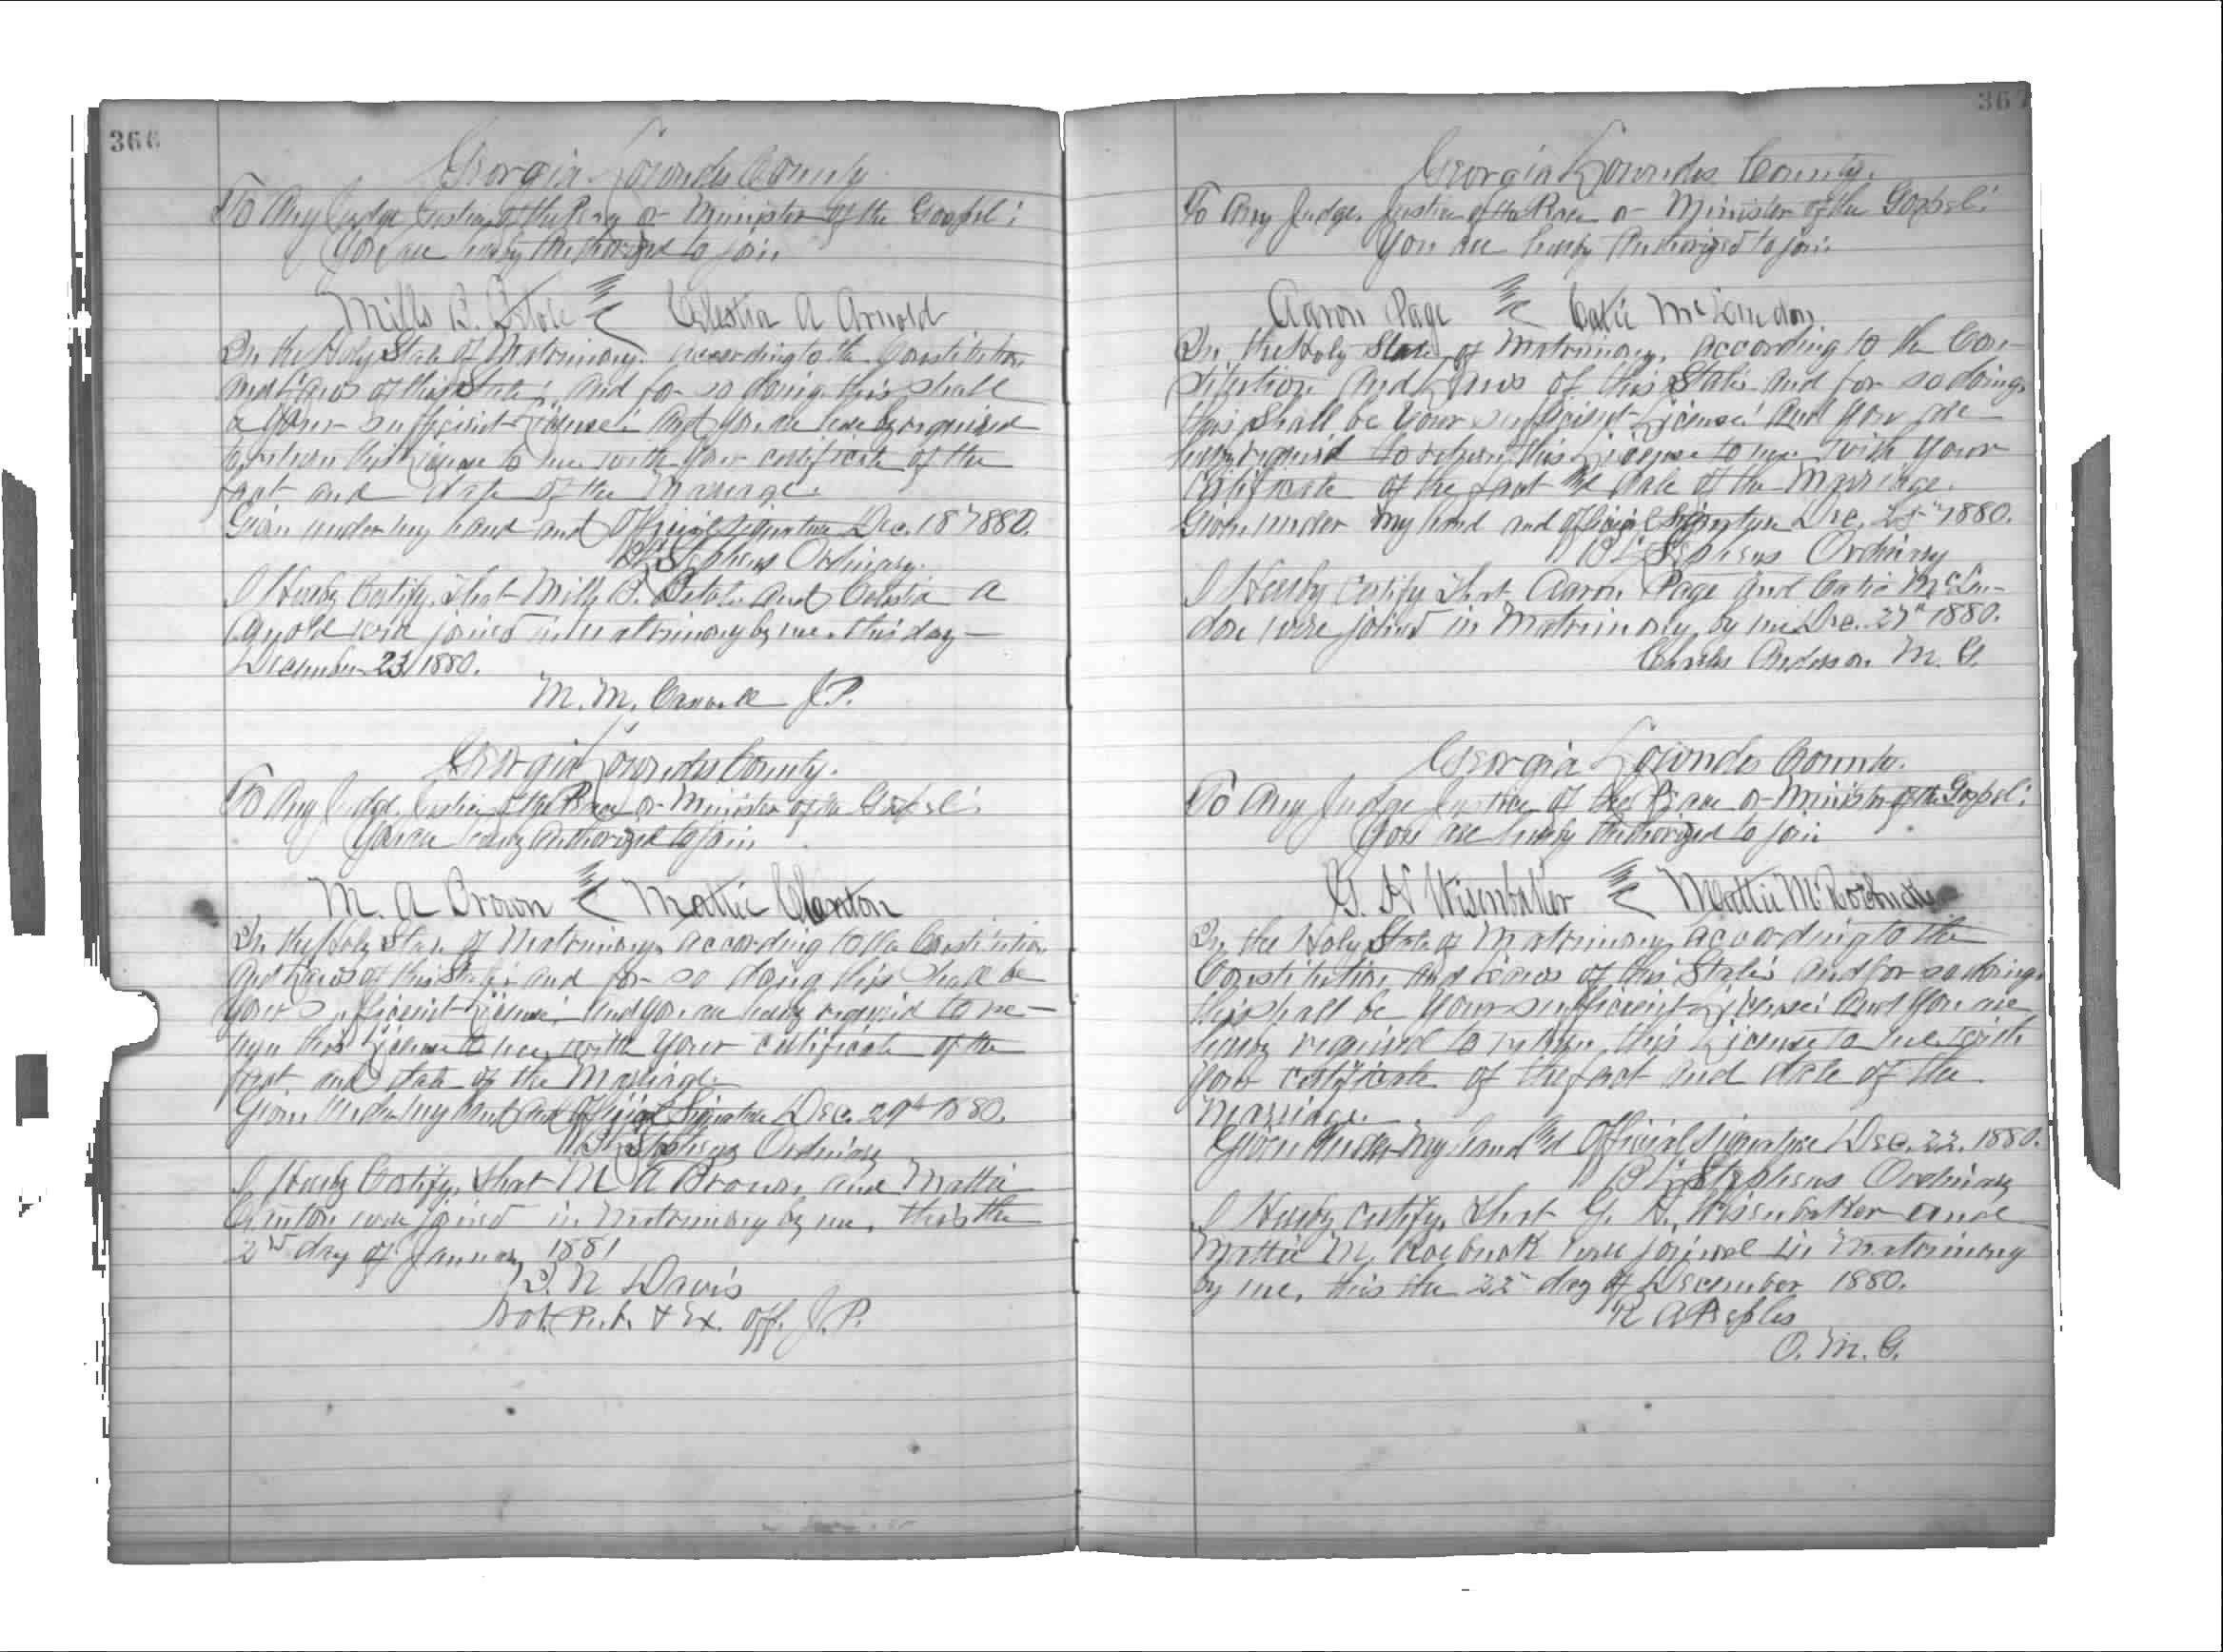 366
Georgia Lowndes County
To Any Judge Justice of the Peace or Minister of the Gospel:
You are hereby Authorized to join
Mills B. and Celestia A Arnold
In the Holy State of Matrimony. according to the Constitution
And Laws of this State; And for so doing this shall
be your sufficient License. And you are hereby required
to return this License to me with your certificate of the
fact and date of the Marriage.
Given under my hand and Official signature Dec. 18" 1880.
Stephens Ordinary.
I Hereby Certify, that Mills B. and Celestia A
Arnold were joined in Matrimony by me this day
December 23, 1880.
M. M. J.P.
Georgia Lowndes County.
To Any Judge, Justice of the Peace or Minister of the Gospel:
You are hereby Authorized to join
M. A Brown and Mattie
In the Holy State of Matrimony, according to the Constitution
And Laws of this State; and for so doing this shall be
your sufficient License. And you are hereby required to re-
turn this License to me with your certificate of the
fact and date of the Marriage.
Given Under my hand and Official Signature Dec. 29th 1880.
Stephens Ordinary
I Hereby Certify, that M A Brown, and Mattie
were joined in Matrimony by me, this the
2nd day of January 1881
D. N Davis
Not. Pub. & Ex. Off. J. P.
367
Georgia Lowndes County.
To Any Judge, Justice of the Peace or Minister of the Gospel:
You are hereby Authorized to join
Aaron Page and Catie McLendon
In the Holy State of Matrimony, according to the Con-
stitution And Laws of this State and for so doing
this shall be your sufficient License: And you are
hereby required to return this License to me with your
Certificate of the fact and date of the Marriage.
Given under my hand and Official Signature Dec. 1880.
B L Stephens Ordinary
I Hereby Certify that Aaron Page and Catie McLen-
don were joined in Matrimony by me Dec. 27" 1880.
Charles Anderson M. G.
Georgia Lowndes County.
To Any Judge Justice of the Peace or Minister of the Gospel:
You are hereby Authorized to join
G. W Wisenbaker and Mattie M Roebuck
In the Holy State of Matrimony, according to the
Constitution and Laws of this State: And for so doing
this shall be your sufficient License: And you are
hereby required to return this License to me with
your certificate of the fact and date of the
Marriage.
Given Under my hand and Official signature Dec. 22. 1880.
B L Stephens Ordinary
I Hereby certify, that G. Wisenbaker and
Mattie M. Roebuck were joined in Matrimony
by me, this the 22" day of December 1880.
R A Peeples
O. M. G.